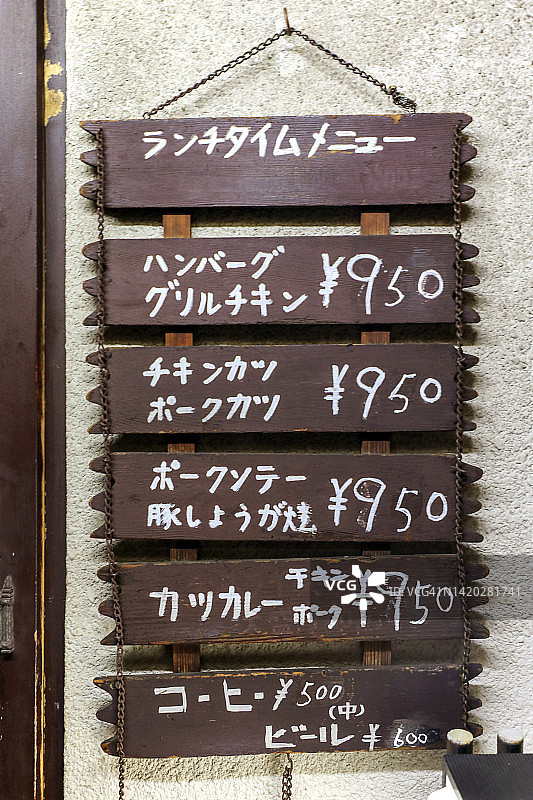 ランチタイムメニュー
ハンバーグ
グリルチキン ¥950
チキンカツ
ポークカツ ¥950
ポークソテー
豚しょうが焼 ¥950
カツカレー チキン ポーク ¥950
コーヒー ¥500
ビール(中) ¥600
VCG
ID: VCG41N1420281741